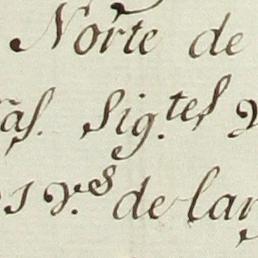 Norte de
as. Sig.tes
v.s de lar